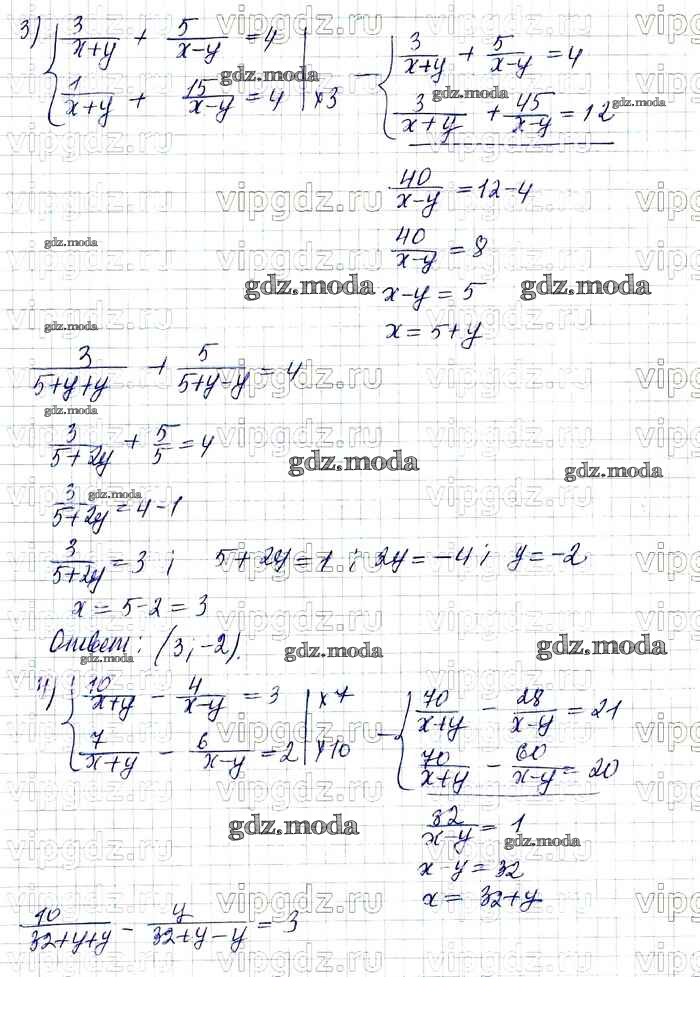 3) { 3/(x+y) + 5/(x-y) = 4
1/(x+y) + 15/(x-y) = 4 | x3
- { 3/(x+y) + 5/(x-y) = 4
3/(x+y) + 45/(x-y) = 12
40/(x-y) = 12-4
40/(x-y) = 8
x-y = 5
x = 5+y
3/(5+y+y) + 5/(5+y-y) = 4
3/(5+2y) + 5/5 = 4
3/(5+2y) = 4-1
3/(5+2y) = 3 ; 5+2y = 1 ; 2y = -4 ; y = -2
x = 5-2 = 3
Ответ: (3; -2).
4) { 10/(x+y) - 4/(x-y) = 3 | x7
7/(x+y) - 6/(x-y) = 2 | x10
- { 70/(x+y) - 28/(x-y) = 21
70/(x+y) - 60/(x-y) = 20
32/(x-y) = 1
x-y = 32
x = 32+y
10/(32+y+y) - 4/(32+y-y) = 3
gdz.moda
vipgdz.ru